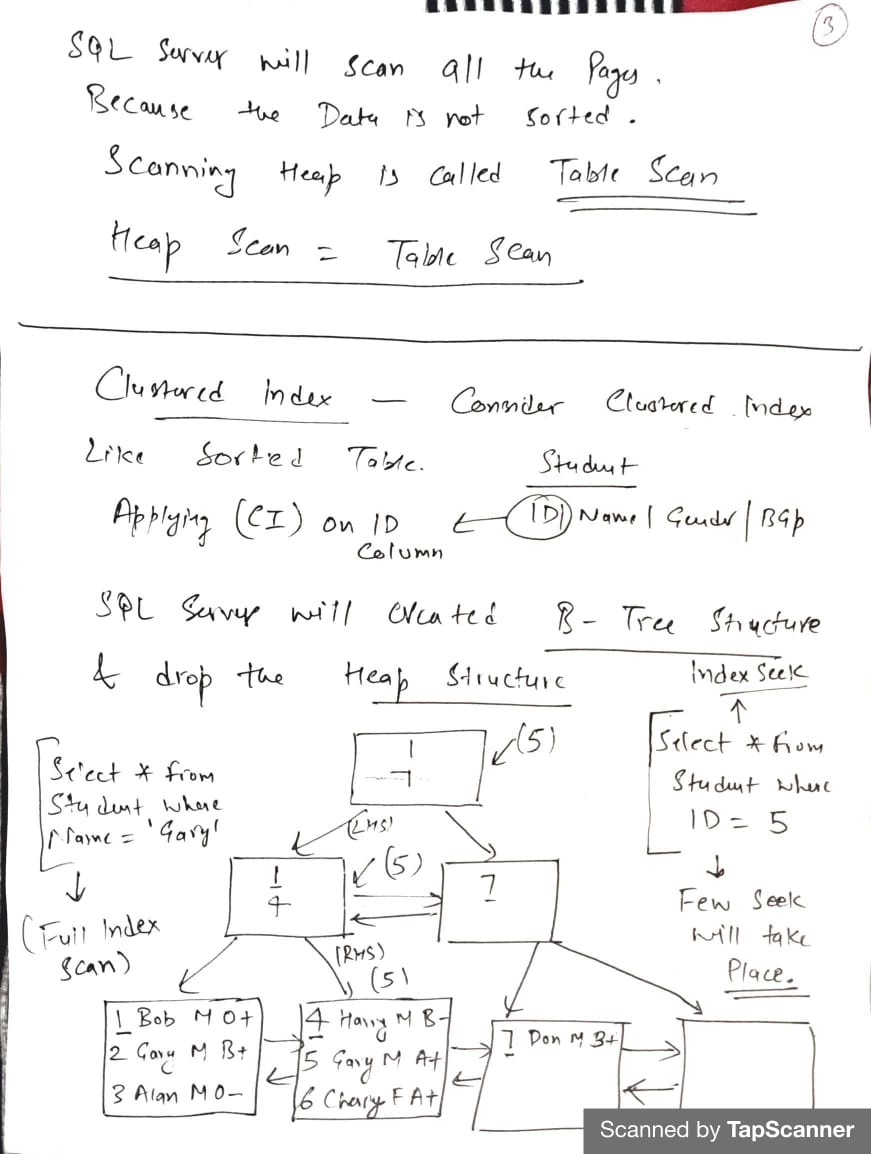 3
SQL Server will scan all the Pages.
Because the Data is not sorted.
Scanning Heap is called Table Scan
Heap Scan = Table Scan
Clustered Index — Consider Clustered Index
Like Sorted Table.
Student
Applying (CI) on ID Column ← ID | Name | Gender | BGp
SQL Server will created B-Tree Structure
& drop the Heap Structure
Index Seek
↑
Select * from
Student where
ID = 5
↓
Few Seek
will take
Place.
Select * from
Student where
Name = 'Gary'
↓
(Full Index
Scan)
1
7
(5)
(LHS)
1
4
(5)
7
(RHS)
(5)
1 Bob M O+
2 Gary M B+
3 Alan M O-
4 Harry M B-
5 Gary M A+
6 Chery F A+
7 Don M B+
Scanned by TapScanner